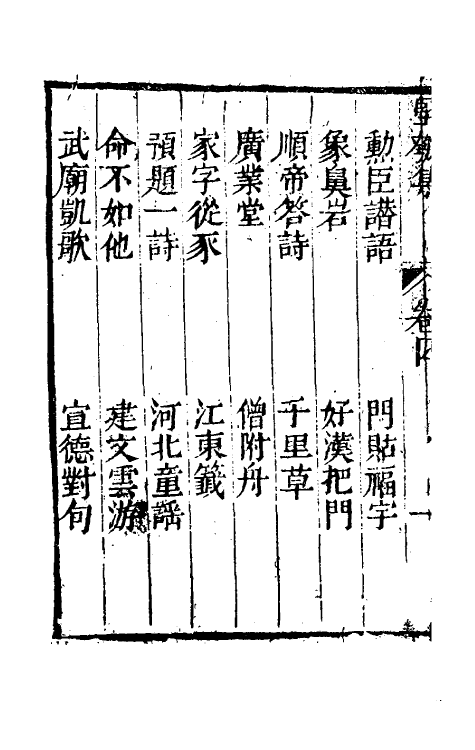 勳臣譛語　門貼福字
象鼻岩　好漢把門
順帝答詩　千里草
廣業堂　僧附舟
家字從豕　江東籤
預題一詩　河北童謠
命不如他　建文雲游
武廟凱歌　宣德對句
卷四
一